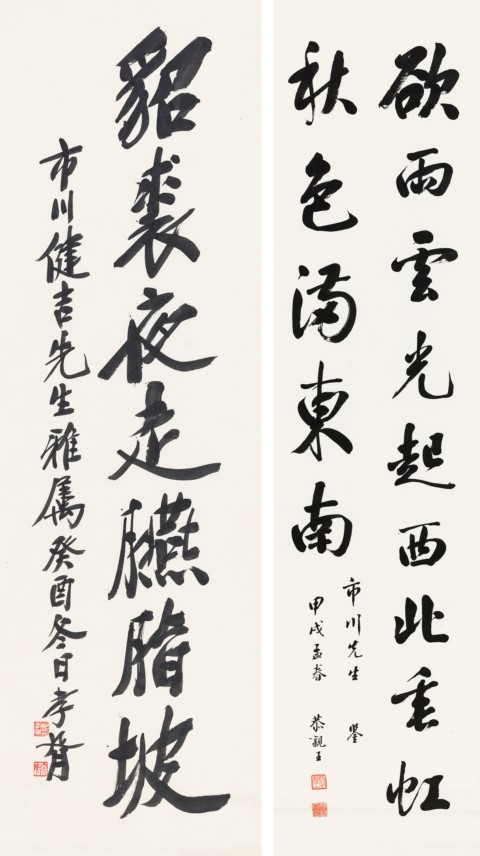 欲雨雲光起西北垂虹
秋色滿東南
市川先生 鑒
甲戌孟春 恭親王
貂裘夜走臙脂坡
市川健吉先生雅属癸酉冬日孝胥